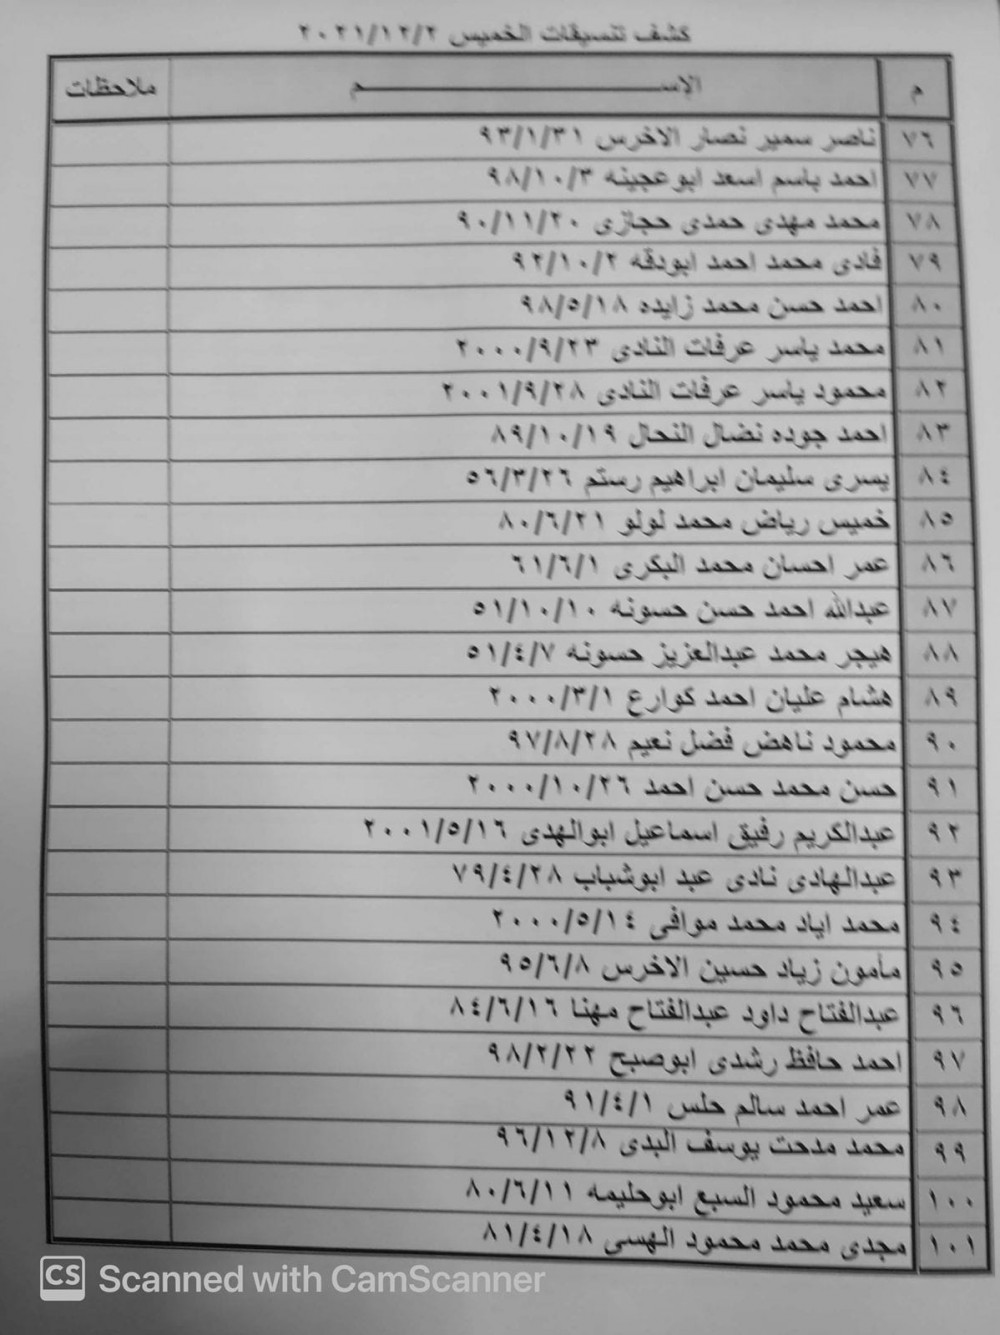 كشف تنسيقات الخميس ٢٠٢١/١٢/٢
م الإســـــــــم ملاحظات
٧٦ ناصر سمير نصار الاخرس ٩٣/١/٣١
٧٧ احمد باسم اسعد ابوعجينه ٩٨/١٠/٣
٧٨ محمد مهدى حمدى حجازى ٩٠/١١/٢٠
٧٩ فادى محمد احمد ابودقه ٩٢/١٠/٢
٨٠ احمد حسن محمد زايده ٩٨/٥/١٨
٨١ محمد ياسر عرفات النادى ٢٠٠٠/٩/٢٣
٨٢ محمود ياسر عرفات النادى ٢٠٠١/٩/٢٨
٨٣ احمد جوده نضال النحال ٨٩/١٠/١٩
٨٤ يسرى سليمان ابراهيم رستم ٥٦/٣/٢٦
٨٥ خميس رياض محمد لولو ٨٠/٦/٢١
٨٦ عمر احسان محمد البكرى ٦١/٦/١
٨٧ عبدالله احمد حسن حسونه ٥١/١٠/١٠
٨٨ هيجر محمد عبدالعزيز حسونه ٥١/٤/٧
٨٩ هشام عليان احمد كوارع ٢٠٠٠/٣/١
٩٠ محمود ناهض فضل نعيم ٩٧/٨/٢٨
٩١ حسن محمد حسن احمد ٢٠٠٠/١٠/٢٦
٩٢ عبدالكريم رفيق اسماعيل ابوالهدى ٢٠٠١/٥/١٦
٩٣ عبدالهادى نادى عبد ابوشباب ٧٩/٤/٢٨
٩٤ محمد اياد محمد موافى ٢٠٠٠/٥/١٤
٩٥ مأمون زياد حسين الاخرس ٩٥/٦/٨
٩٦ عبدالفتاح داود عبدالفتاح مهنا ٨٤/٦/١٦
٩٧ احمد حافظ رشدى ابوصبح ٩٨/٢/٢٢
٩٨ عمر احمد سالم حلس ٩١/٤/١
٩٩ محمد مدحت يوسف البدى ٩٦/١٢/٨
١٠٠ سعيد محمود السبع ابوحليمه ٨٠/٦/١١
١٠١ مجدى محمد محمود الهسى ٨١/٤/١٨
CS Scanned with CamScanner